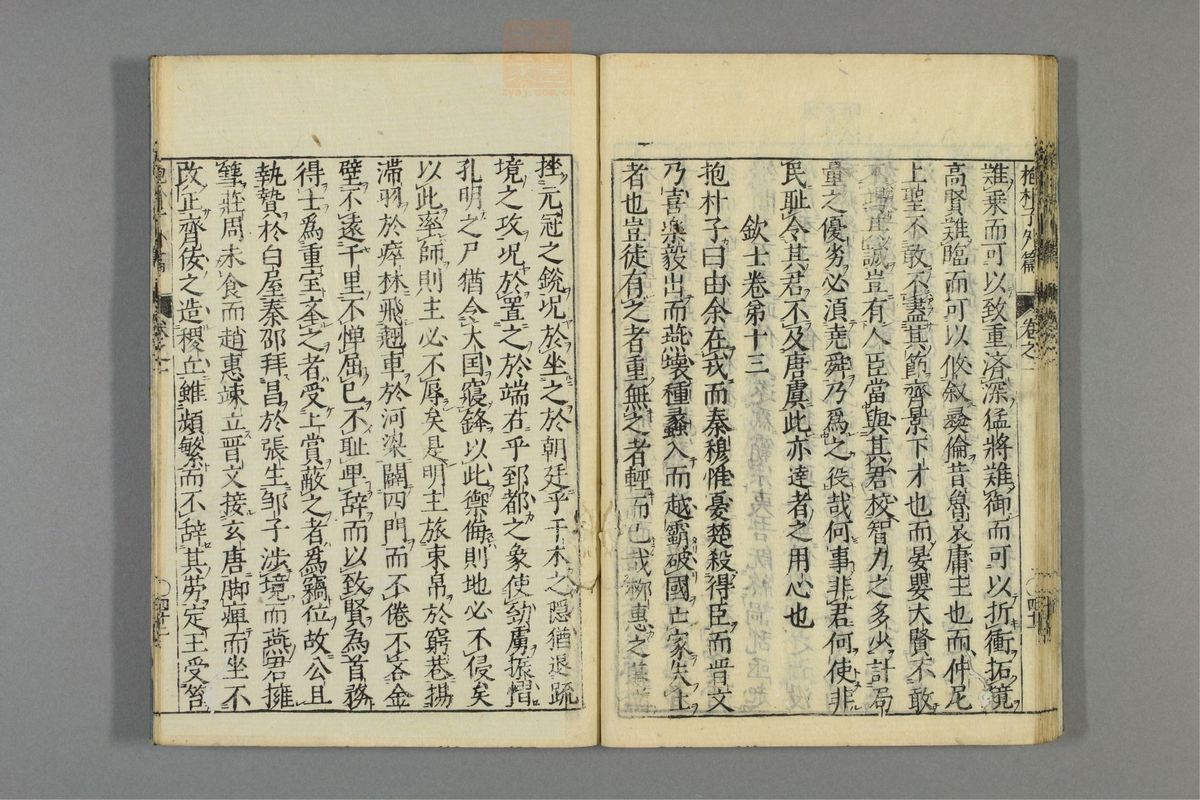 抱朴子外篇 卷之一
難乗而可以致重済深猛將難御而可以折衝拓境
高賢難臨而可以攸叙彜倫昔魯哀庸主也而仲尼
上聖不敢不盡其節齊景下才也而晏嬰大賢不敢
不竭其誠豈有人臣當與其君校智力之多少計局
量之優劣必湏堯舜乃爲之役哉何事非君何使非
民耻令其君不及唐虞此亦達者之用心也
欽士卷第十三
抱朴子曰由余在戎而秦穆惟憂楚殺得臣而晋文
乃喜樂毅出而燕壊種蠡入而越霸破國亡家失士
者也豈徒有之者重無之者輕而已哉柳惠之墓
挫元冠之鋭况於坐之於朝廷乎干木之隠猶退踈
境之攻况於置之於端右乎郅都之象使勁虜振慴
孔明之尸猶令大国寢鋒以此禦侮則地必不侵矣
以此率師則主必不辱矣是明主旅束帛於窮巷揚
滞羽於瘁林飛翹車於河梁闢四門而不倦不吝金
璧不遠千里不憚屈已不耻卑辞而以致賢為首務
得士爲重宝夲之者受上賞蔽之者爲竊位故公旦
執贄於白屋秦邵拜昌於張生邹子渉境而燕君擁
篲莊周未食而趙惠竦立晋文接玄唐脚痺而坐不
改正齊佞之造稷丘雖頻繁而不辞其劳定王受笞